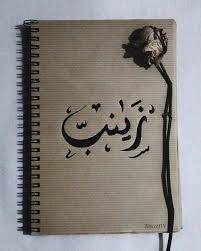 زينب